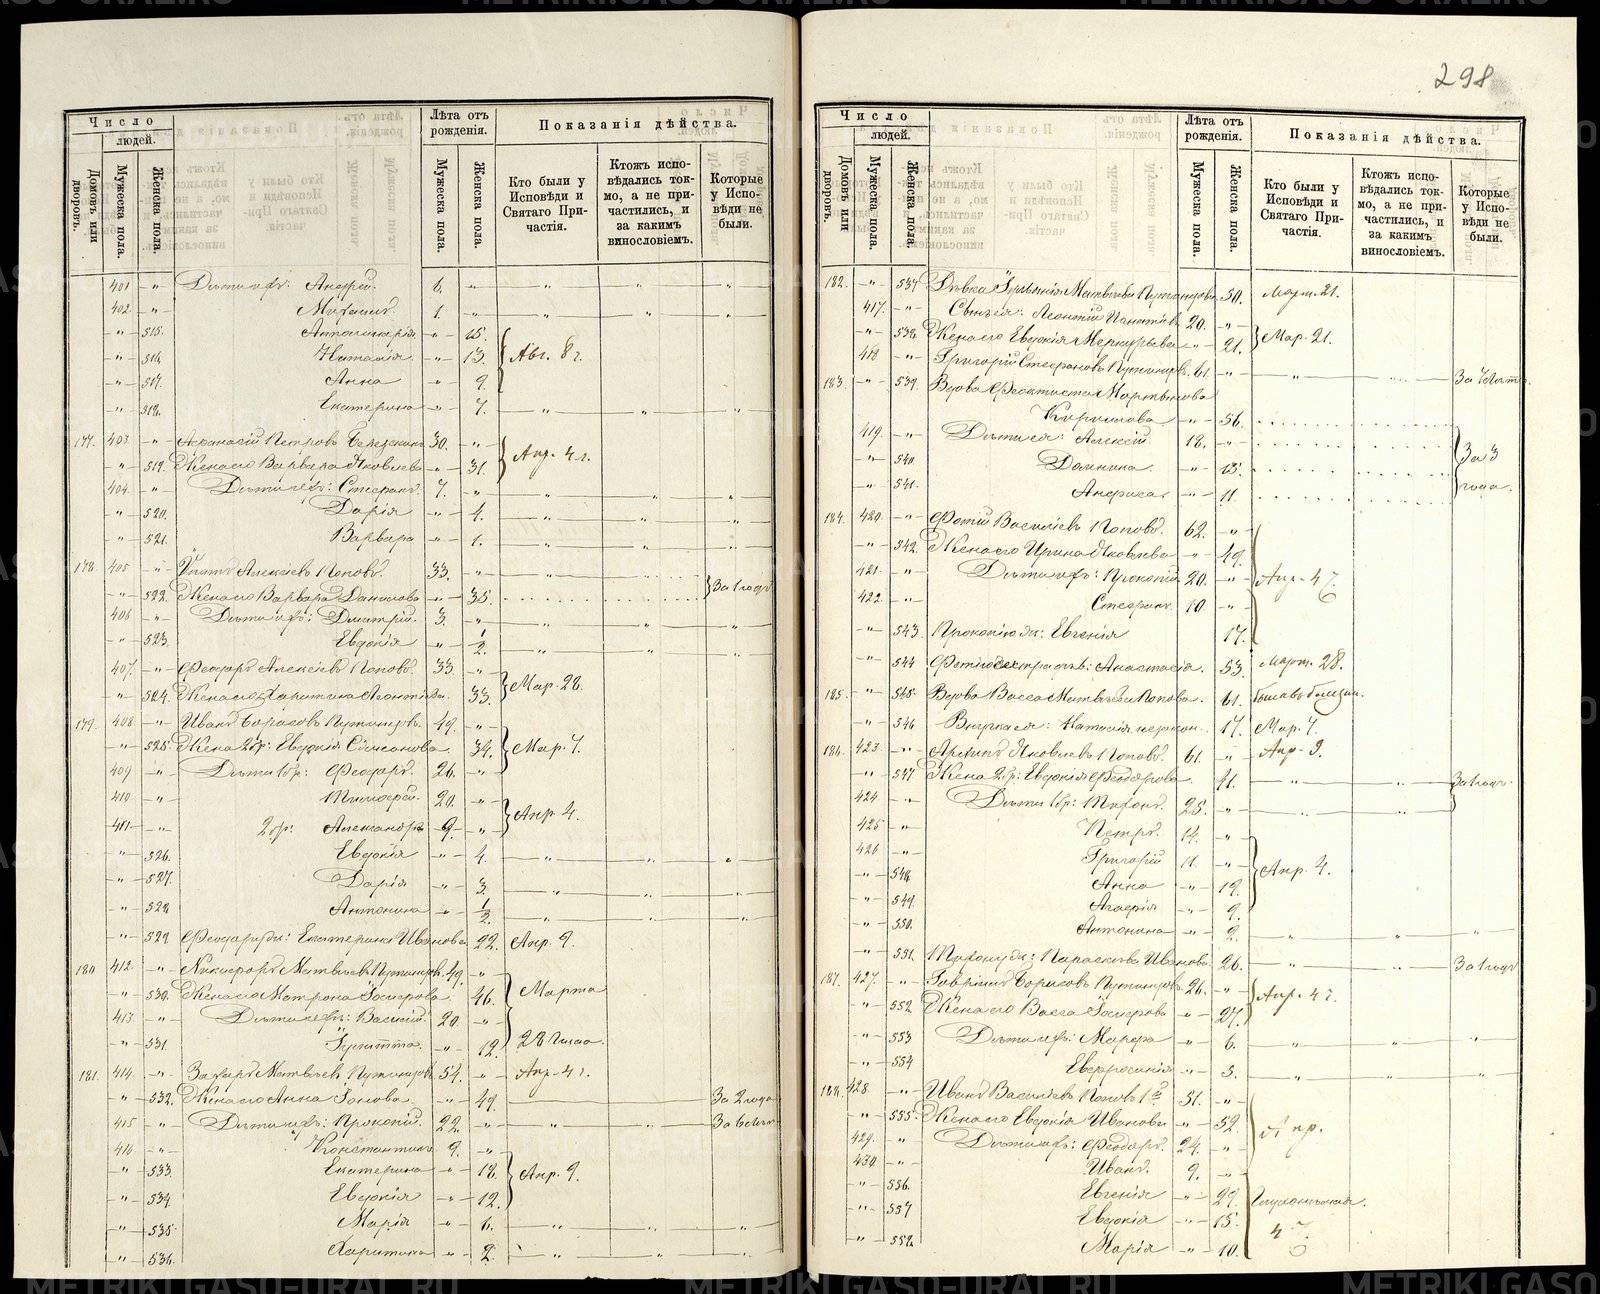 298
Число
людей.
Домовъ или дворовъ.
Мужеска пола.
Женска пола.
Лѣта отъ рожденія.
Мужеска пола.
Женска пола.
Показанія дѣйства.
Кто были у Исповѣди и Святаго Причастія.
Ктожъ исповѣдались токмо, а не причастились, и за какимъ винословіемъ.
Которые у Исповѣди не были.
401 — " — Дѣти ихъ: Андрей. 6. "
402 — " — Михаилъ. 1. "
" — 515. Антонина — " — 15.
" — 516. Наталія. — " — 13. Апр. 8 г.
" — 517. Анна — " — 9.
" — 518. Екатерина — " — 7.
177. 403 — " — Афанасій Петровъ 30. — " —
" — 519. Жена его Варвара Яковлева — " — 31. Апр. 4 г.
404 — " — Дѣти ихъ: Стефанъ. 7. "
" — 520. Дарія — " — 4.
" — 521. Варвара — " — 1.
178. 405 — " — Алексѣевъ Поповъ. 33. — " —
" — 522. Жена его Варвара Данилова — " — 35. За 1 годъ
406 — " — Дѣти ихъ: Димитрій. 3. "
" — 523. Евдокія — " — 1/2.
407. — " — Ѳеодоръ Алексѣевъ Поповъ. 33 — " —
" — 524. Жена его Харитина Леонтіева. 33. Мар. 28.
179. 408 — " — Иванъ Борисовъ Путинцовъ. 49. — " —
" — 525. Жена 2 бр: Евдокія Самсонова. 34. Мар. 7.
409 — " — Дѣти 1 бр: Ѳеодоръ. 26. — " —
410 — " — Тимоѳей. 20. — " —
411 — " — 2 бр: Александръ — 9. — " — Апр. 4.
" — 526. Евдокія — " — 4.
" — 527. Дарія — " — 3.
" — 528. Антонина — " — 1/2.
" — 529 Ѳеодора жн: Екатерина Иванова 22. Апр. 9.
180 412. — " — Никифоръ Матвѣевъ Путинцовъ. 49. — " —
" — 530. Жена его Матрона Іосифова 46. Марта
413. — " — Дѣти ихъ: Василій. 20. — " —
" — 531. Іулитта. — " — 12. 28 числа.
181. 414. — " — Захаръ Матвѣевъ Путинцовъ 54. — " — Апр. 4 г.
" — 532. Жена его Анна Іонова. — " — 49. За 2 года
415 — " — Дѣти ихъ: Прокопій. 22. — " — За 6 лѣтъ
416 — " — Константинъ. 9. — " —
" — 533 Екатерина — " — 18. Апр. 9.
" — 534. Евдокія — " — 12.
" — 535 Марія — " — 6.
" — 536. Харитина — " — 2.
Число
людей.
Домовъ или дворовъ.
Мужеска пола.
Женска пола.
Лѣта отъ рожденія.
Мужеска пола.
Женска пола.
Показанія дѣйства.
Кто были у Исповѣди и Святаго Причастія.
Ктожъ исповѣдались токмо, а не причастились, и за какимъ винословіемъ.
Которые у Исповѣди не были.
182. — " — 537 Дѣвка Іуліанія Матвѣева Путинцова 50. Март. 21.
417. — " — Леонтій Игнатіевъ 20. — " —
" — 538. Жена его Евдокія Меркурьева — " — 21. Мар. 21.
418 — " — Григорій Стефановъ Путинцовъ. 61. — " —
183 — " — 539. Вдова Ѳеоктиста Мартынова
Кирилова — " — 56.
419. — " — Дѣти ея: Алексій. 18. — " —
" — 540 Домнина. — " — 13. За 3
" — 541. Анфиса — " — 11. года.
184. 420 — " — Фотій Василіевъ Поповъ. 62. — " —
" — 542. Жена его Ирина Яковлева — " — 49.
421. — " — Дѣти ихъ: Прокопій 20. — " — Апр. 4 г.
422. — " — Стефанъ. 10. — " —
" — 543. Прокопію жн: Евгенія 17.
" — 544 Анастасія. 53. Март. 28.
185. — " — 545. Вдова Васса Матвѣева Попова. 61.
" — 546 Внучка ея: Наталія 17. Мар. 7.
186. 423. — " — Архипъ Яковлевъ Поповъ. 61. — " — Апр. 9.
" — 547 Жена 2 бр: Евдокія Ѳеодорова. 41. За 1 годъ.
424 — " — Дѣти 1 бр: Тихонъ. 25. "
425 — " — Петръ. 14. — " —
426 — " — Григорій 11. — " —
" — 548. Анна — " — 12. Апр. 4.
" — 549. Агафія — " — 9.
" — 550. Антонина — " — 2.
" — 551. Тихону жн: Параскева Иванова. 26. За 1 годъ
187. 427. — " — Гавріилъ Борисовъ Путинцовъ 26. — " —
" — 552 Жена его Васса Іосифова — " — 27. Апр. 4 г.
" — 553 Дѣти ихъ: Марфа — " — 6.
" — 554 Евфросинія — " — 3.
188. 428. — " — Иванъ Василіевъ Поповъ 1й 51. — " —
" — 555. Жена его Евдокія Иванова — " — 52.
429. — " — Дѣти ихъ: Ѳеодоръ. 24. — " — Апр.
430 — " — Иванъ. 9. — " —
" — 556. Евгенія — " — 29. Глухонѣмая.
" — 557 Евдокія — " — 15. 4
" — 558. Марія — " — 10.
METRIKI.GASO-URAL.RU